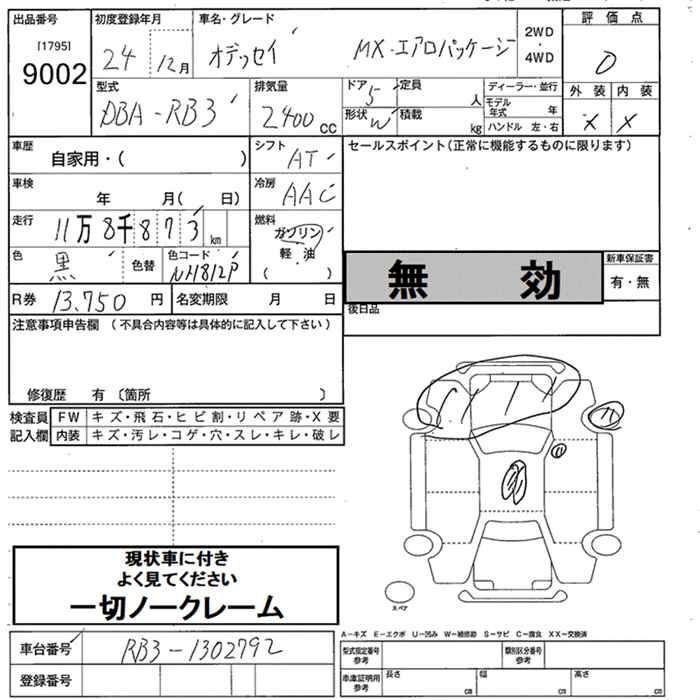 出品番号
[1795]
9002
初度登録年月
24 12月
車名・グレード
オデッセイ MX・エアロパッケージ
2WD
・
4WD
評価点
0
外装 内装
X X
型式
DBA-RB3
排気量
2400cc
ドア 5
形状 W
定員 人
積載 kg
ディーラー・並行
モデル年式 年
ハンドル 左・右
車歴 自家用・( )
シフト AT
セールスポイント(正常に機能するものに限ります)
車検 年 月( 日)
冷房 AAC
走行 11万8千873km
燃料
ガソリン
軽油
( )
色 黒 色替
色コード NH812P
無効
新車保証書
有・無
R券 13,750円 名変期限 月 日
後日品
注意事項申告欄 (不具合内容等は具体的に記入して下さい)
修復歴 有 〔箇所 〕
検査員 FW キズ・飛石・ヒビ割・リペア跡・X要
記入欄 内装 キズ・汚レ・コゲ・穴・スレ・キレ・破レ
現状車に付き
よく見てください
一切ノークレーム
スペア
A-キズ E-エクボ U-凹み W-補修跡 S-サビ C-腐食 XX-交換済
車台番号 RB3-1302792
登録番号
型式指定番号
参考
類別区分番号
参考
車庫証明用
参考
長さ cm 幅 cm 高さ cm